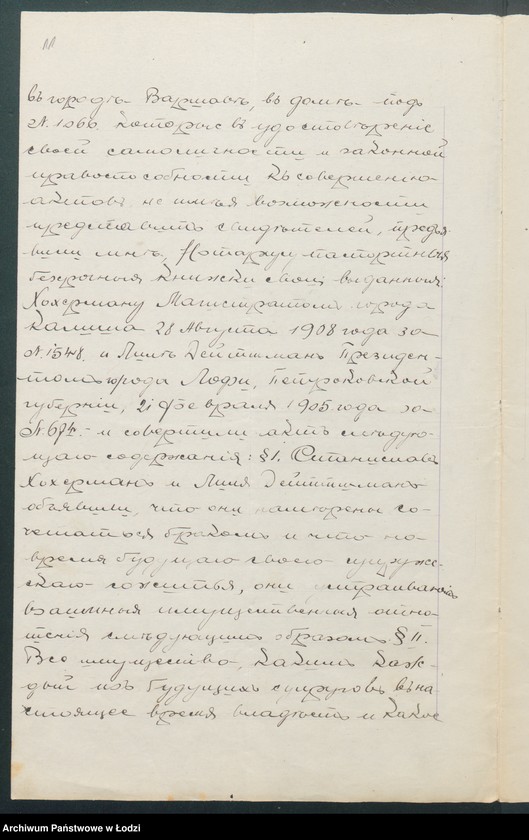 11
въ городѣ Варшавѣ, въ домѣ подъ
№ 1066. которые въ удостовѣреніе
своей самоличности и законной
правоспособности къ совершенію
актовъ не имѣя возможности
представить свидѣтелей, предъя-
вили мнѣ, Нотаріусу паспортныя
безсрочныя книжки свои выданныя:
Хохерману Магистратомъ города
Калиша 28 Августа 1908 года за
№ 1548. и Лиліи Дейтшманъ Президен-
томъ города Лодзи, Петроковской
губерніи, 21 Февраля 1905 года за
№ 674.- и совершили актъ слѣдую-
щаго содержанія: § I. Станиславъ
Хохерманъ и Лилія Дейтшманъ
объявили, что они намѣрены со-
четаться бракомъ и что на
время будущаго своего супруже-
скаго сожитья, они устраиваютъ
взаимныя имущественныя отно-
шенія слѣдующимъ образомъ § II.
Все имущество, какимъ каж-
дый изъ будущихъ супруговъ въ на-
стоящее время владѣетъ и какое
Archiwum Państwowe w Łodzi